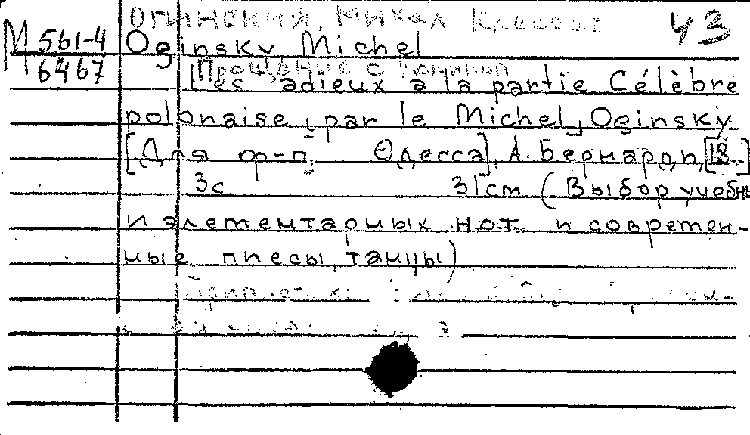 Огинский, Михал Клеофас 43
М 561-4 Oginsky, Michel
6467 [Прощание с родиной]
Les adieux à la partie Célèbre
polonaise, par le Michel, Oginsky
[Для ф-п. Одесса], А. Бернарди, [18..]
3с 31см (Выбор учебн
и элементарных нот и современ-
ные пиесы, танцы)